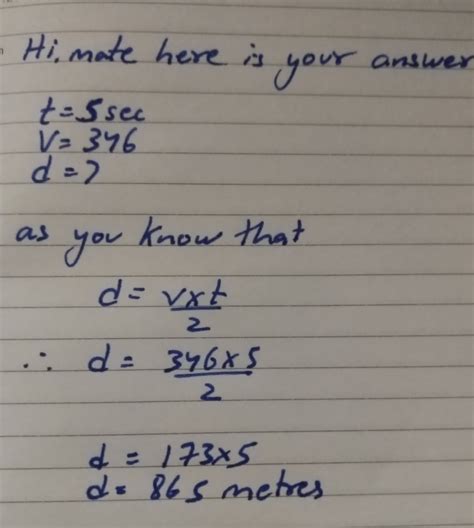 Hi, mate here is your answer
t = 5 sec
V = 346
d = ?
as you know that
d = v x t
2
∴ d = 346 x 5
2
d = 173 x 5
d = 865 metres